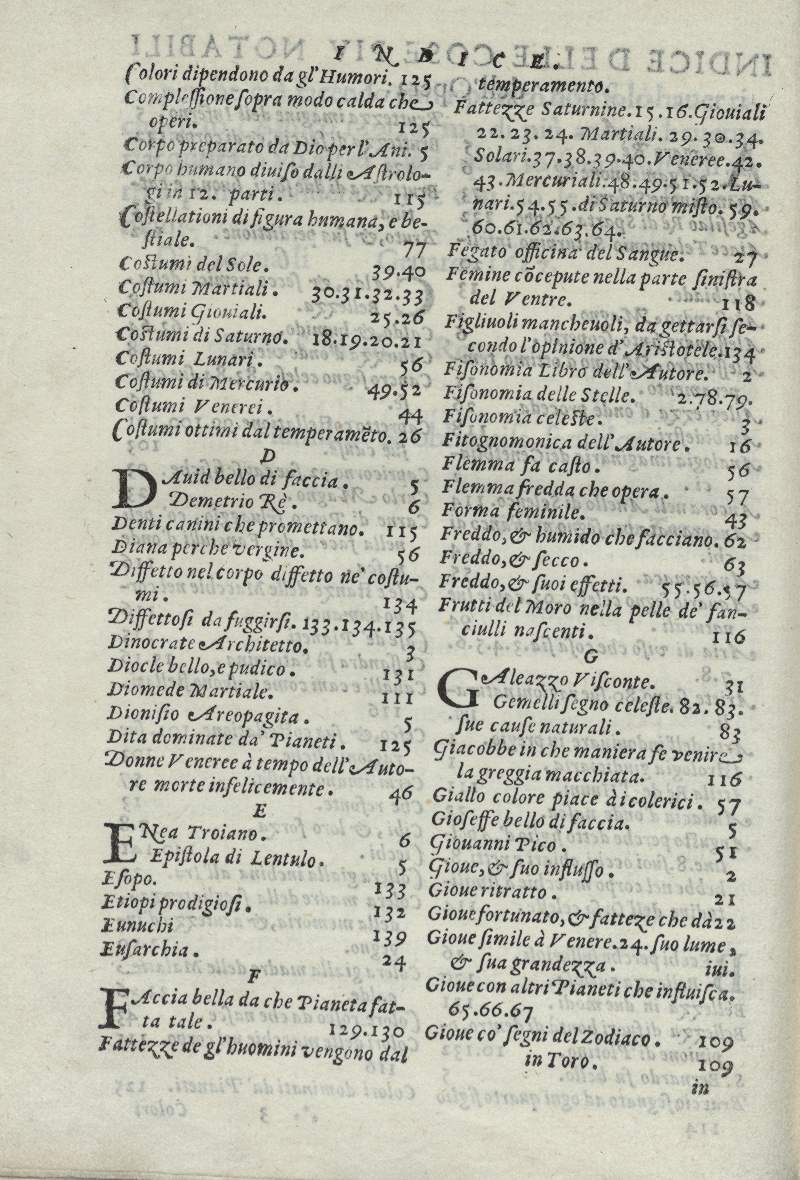 INDICE.
Colori dipendono da gl'Humori. 125
Complessione sopra modo calda che
operi. 125
Corpo preparato da Dio per l'Ani. 5
Corpo humano diuiso dalli Astrolo-
gi in 12. parti. 115
Costellationi di figura humana, e be-
stiale. 77
Costumi del Sole. 39.40
Costumi Martiali. 30.31.32.33
Costumi Giouiali. 25.26
Costumi di Saturno. 18.19.20.21
Costumi Lunari. 56
Costumi di Mercurio. 49.52
Costumi Venerei. 44
Costumi ottimi dal temperamẽto. 26
D
DAuid bello di faccia. 5
Demetrio Rè. 6
Denti canini che promettano. 115
Diana perche vergine. 56
Diffetto nel corpo diffetto ne' costu-
mi. 134
Diffettosi da fuggirsi. 133.134.135
Dinocrate Architetto. 3
Diocle bello, e pudico. 131
Diomede Martiale. 111
Dionisio Areopagita. 5
Dita dominate da' Pianeti. 125
Donne Veneree à tempo dell'Auto-
re morte infelicemente. 46
E
ENea Troiano. 6
Epistola di Lentulo. 5
Esopo. 133
Etiopi prodigiosi. 132
Eunuchi 139
Eusarchia. 24
F
FAccia bella da che Pianeta fat-
ta tale. 129.130
Fattezze de gl'huomini vengono dal
temperamento.
Fattezze Saturnine. 15.16. Giouiali
22.23.24. Martiali. 29.30.34.
Solari. 37.38.39.40. Veneree. 42.
43. Mercuriali. 48.49.51.52. Lu-
nari. 54.55. di Saturno misto. 59.
60.61.62.63.64.
Fegato officina del Sangue. 27
Femine cõcepute nella parte sinistra
del Ventre. 118
Figliuoli mancheuoli, da gettarsi se-
condo l'opinione d'Aristotele. 134
Fisonomia Libro dell'Autore. 2
Fisonomia delle Stelle. 2.78.79.
Fisonomia celeste. 3
Fitognomonica dell'Autore. 16
Flemma fa casto. 56
Flemma fredda che opera. 57
Forma feminile. 43
Freddo, & humido che facciano. 62
Freddo, & secco. 63
Freddo, & suoi effetti. 55.56.57
Frutti del Moro nella pelle de' fan-
ciulli nascenti. 116
G
GAleazzo Visconte. 31
Gemelli segno celeste. 82.83.
sue cause naturali. 83
Giacobbe in che maniera fe venire
la greggia macchiata. 116
Giallo colore piace à i colerici. 57
Gioseffe bello di faccia. 5
Giouanni Pico. 51
Gioue, & suo influsso. 2
Gioue ritratto. 21
Gioue fortunato, & fatteze che dà 22
Gioue simile à Venere. 24. suo lume,
& sua grandezza. iui.
Gioue con altri Pianeti che influisca.
65.66.67
Gioue co' segni del Zodiaco. 109
in Toro. 109
in